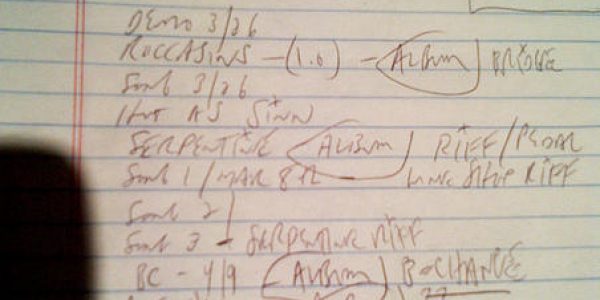 DEMO 3/26
ROCCASINS - (1.0) - ALBUM BRIDGE
SONG 3/26
HOT AS SINN
SERPENTINE ALBUM RIFF/
SONG 1/MAR 8 RIFF
SONG 2
SONG 3 - SERPENTINE RIFF
BC - 4/9 ALBUM B-CHANGE